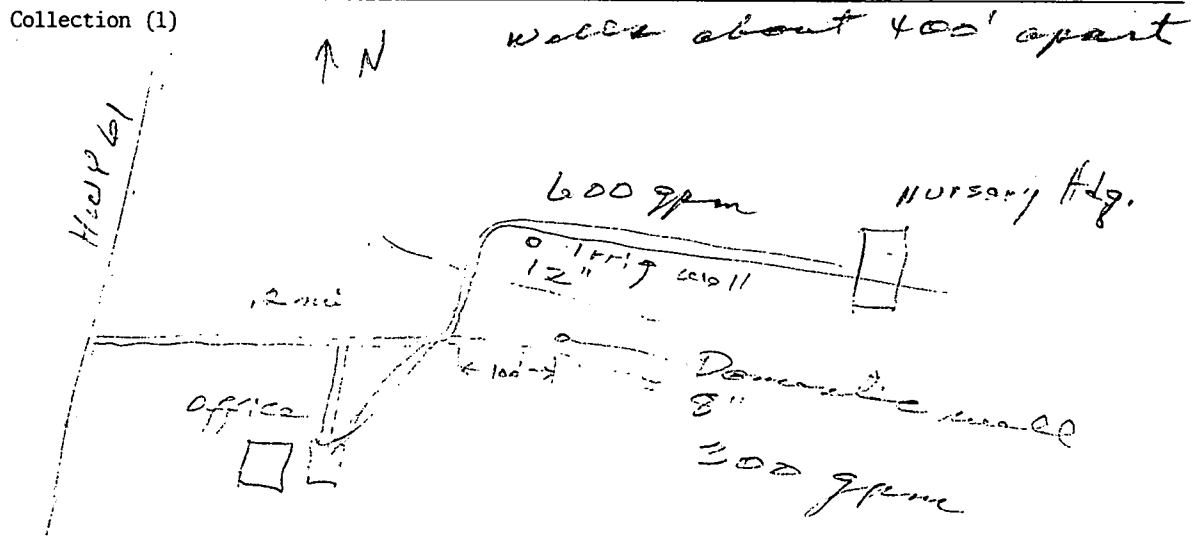 Collection (1)
Wells about 400' apart
↑ N
Hwy 61
600 gpm
Nursery Hdq.
Irrig well
12"
.2 mi
100'
Domestic well
8"
Office
200 gpm